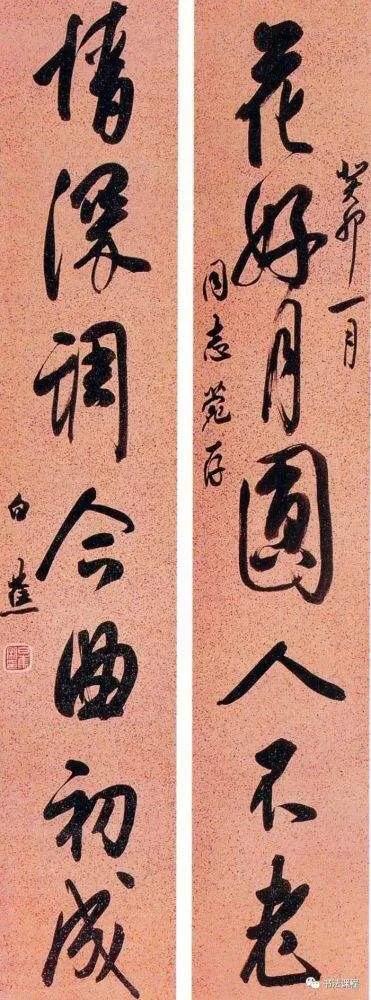 花好月圓人不老
癸卯一月
同志存
情深調合曲初成
白蕉
书法课程